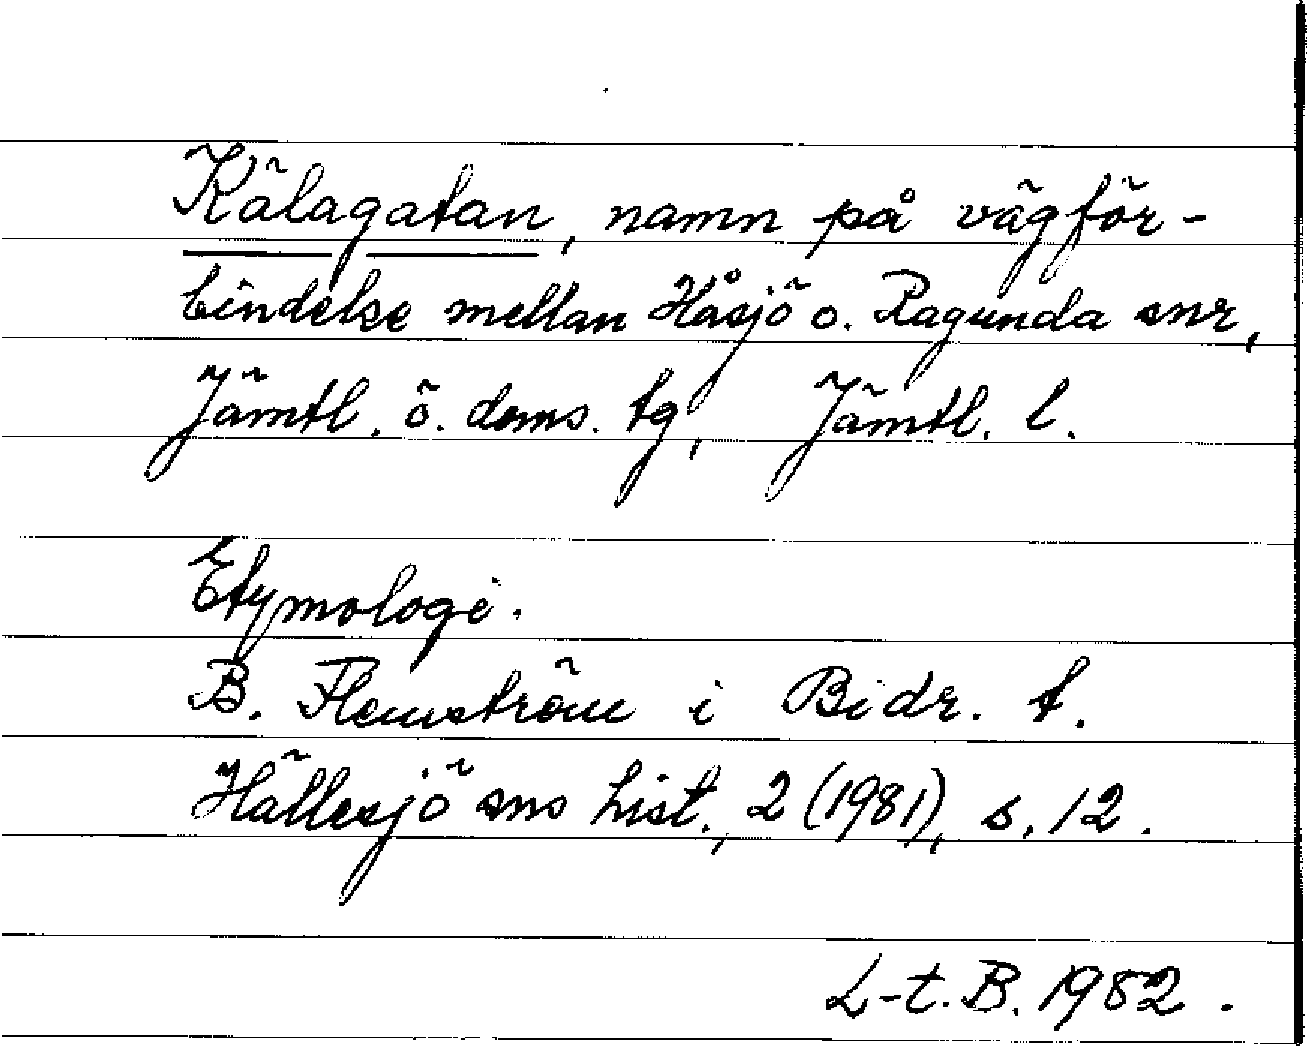 Kälagatan, namn på vägför-
bindelse mellan Håsjö o. Ragunda snr,
Jämtl. ö. doms. tg, Jämtl. l.
Etymologi.
B. Flemström i Bidr. t.
Hällesjö sns hist., 2 (1981), s. 12.
L-t. B. 1982.